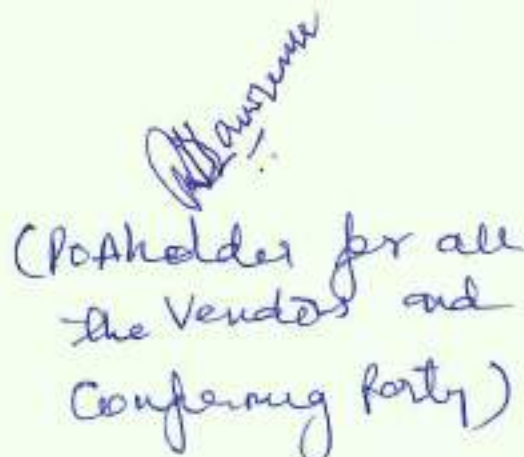 Lawrence
(PoAholder for all
the Vendors and
Confirming Party)